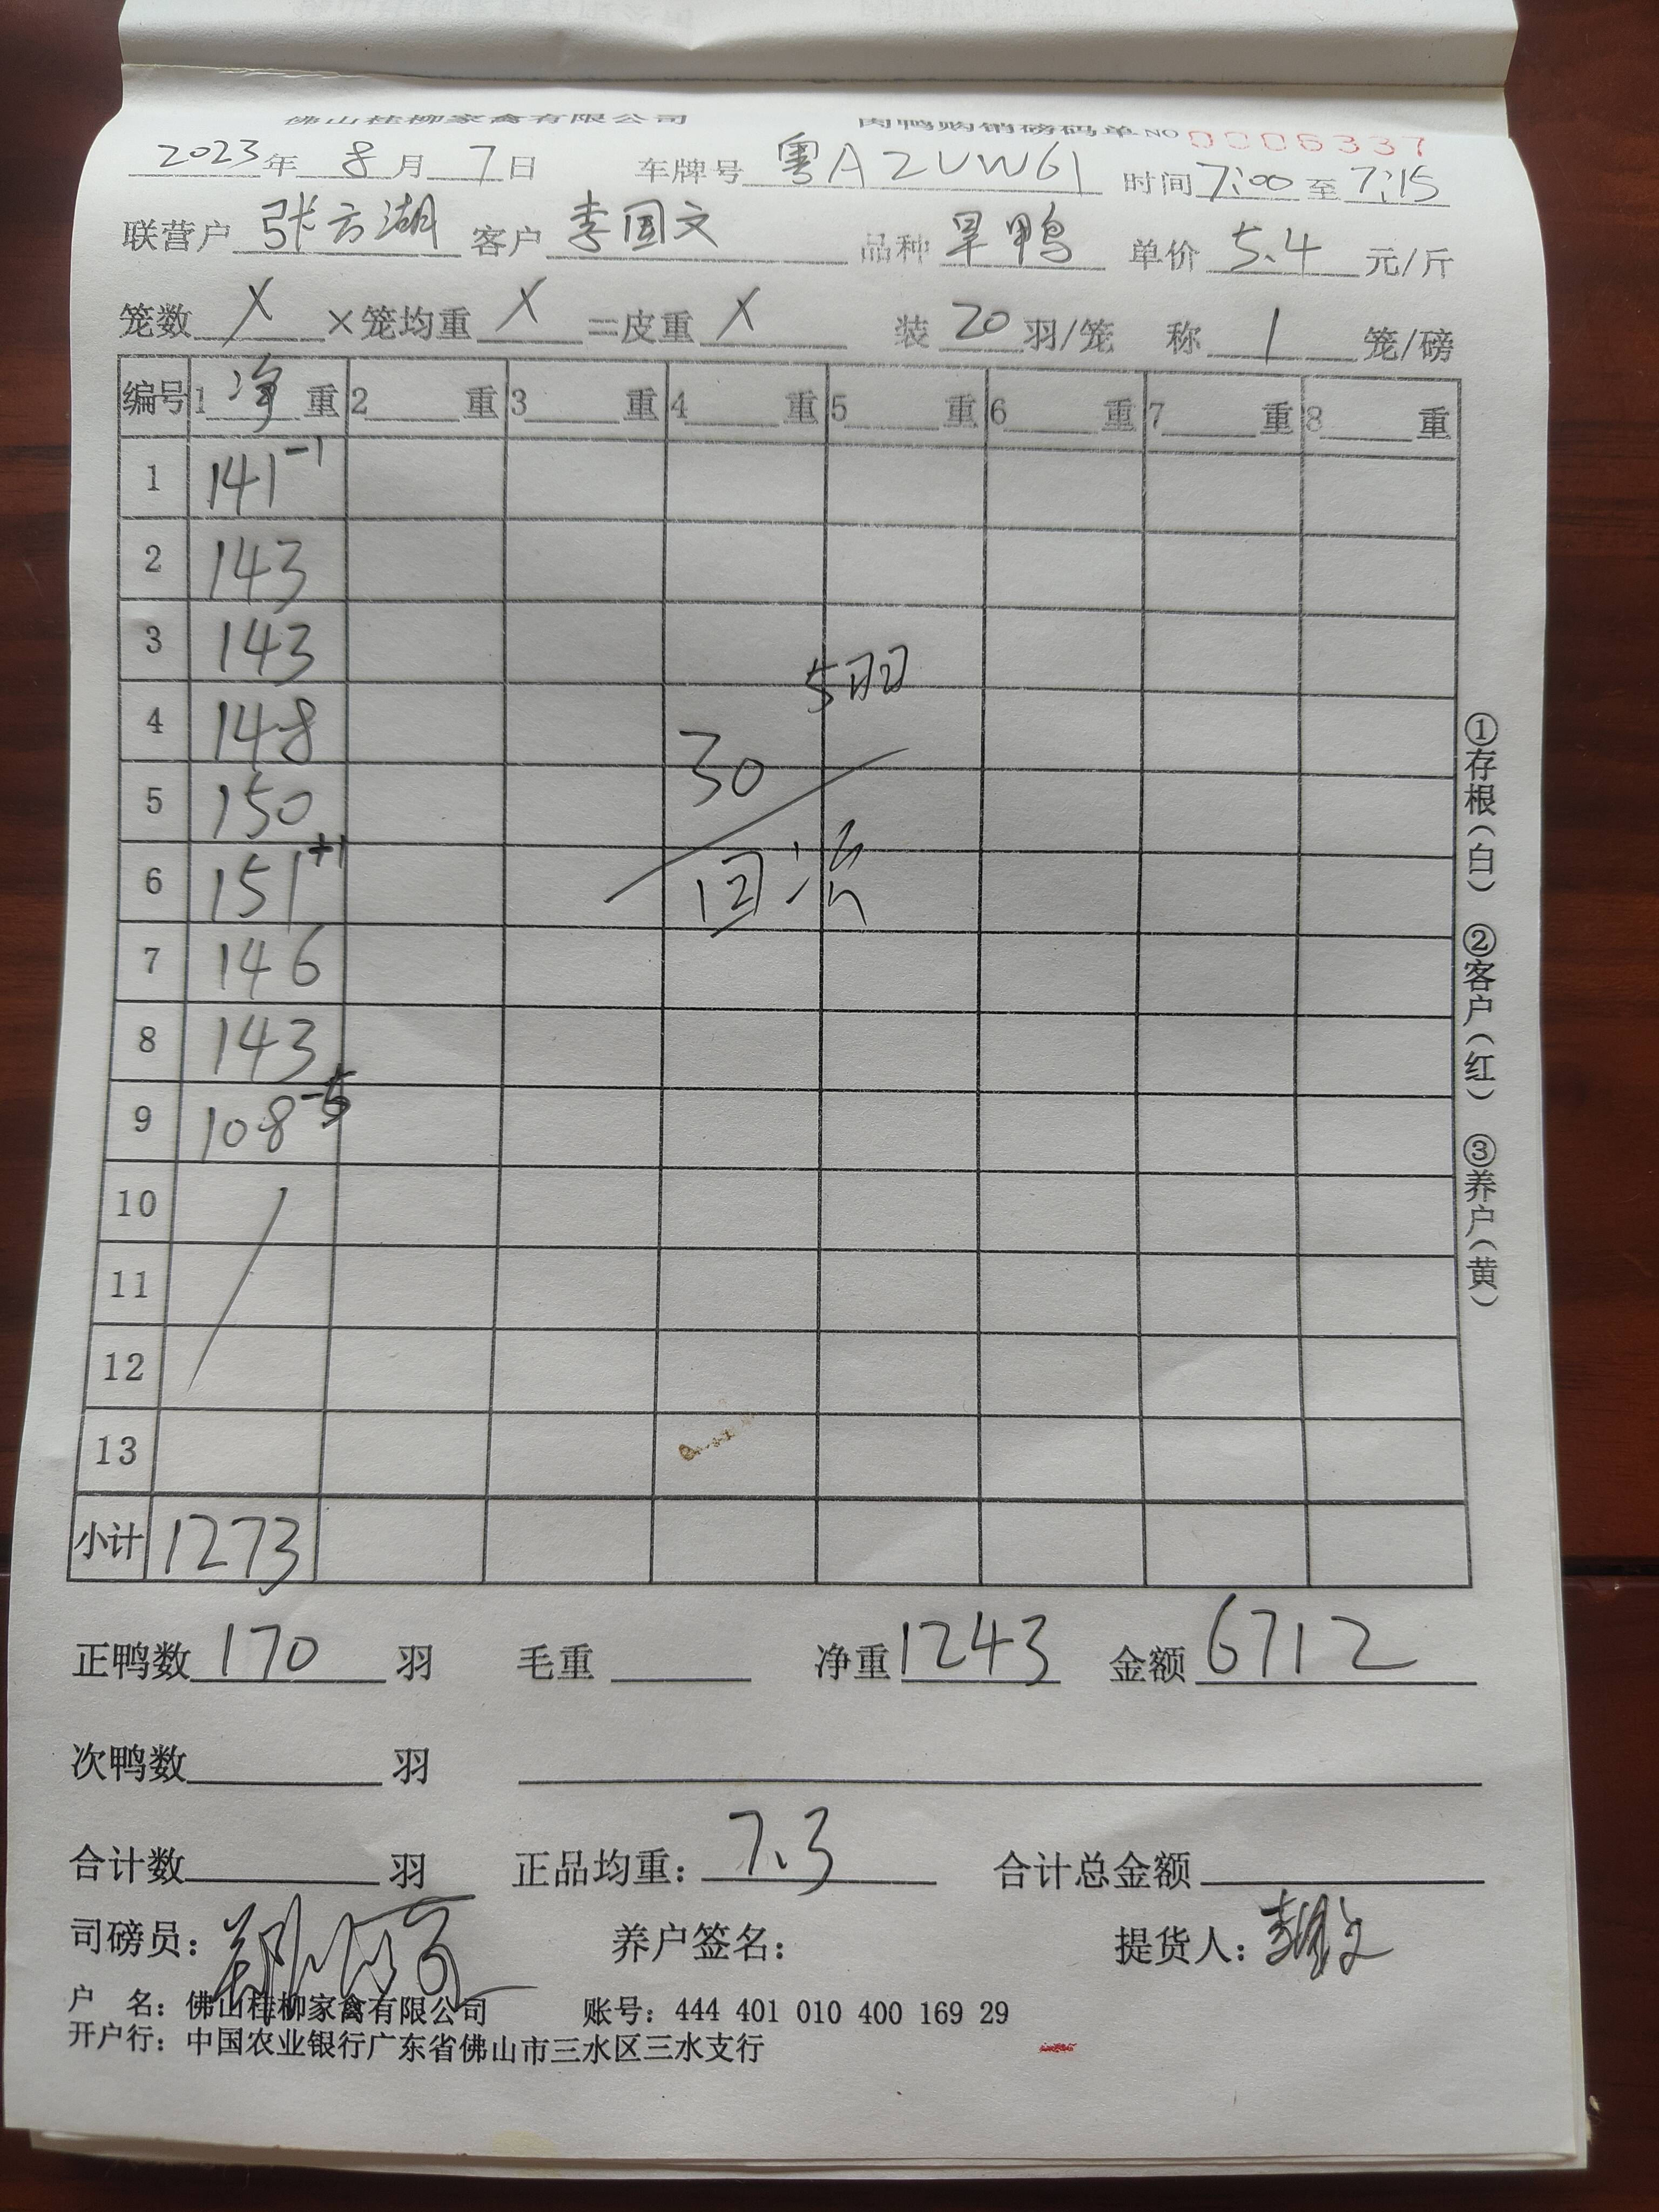 佛山桂柳家禽有限公司 肉鸭购销磅码单 NO 0006337
2023年 8月 7日 车牌号 粤A2UW61 时间 7:00 至 7:15
联营户 张方湖 客户 李国文 品种 旱鸭 单价 5.4 元/斤
笼数 X ×笼均重 X =皮重 X 装 20 羽/笼 称 1 笼/磅
编号 1 净 重 2 重 3 重 4 重 5 重 6 重 7 重 8 重
1 141 -1
2 143
3 143
4 148
5 150
6 151 +1
7 146
8 143
9 108 -5
10
11
12
13
小计 1273
5羽
30
回
①存根(白) ②客户(红) ③养户(黄)
正鸭数 170 羽 毛重 净重 1243 金额 6712
次鸭数 羽
合计数 羽 正品均重: 7.3 合计总金额
司磅员: 养户签名: 提货人: 李国文
户 名: 佛山桂柳家禽有限公司 账号: 444 401 010 400 169 29
开户行: 中国农业银行广东省佛山市三水区三水支行